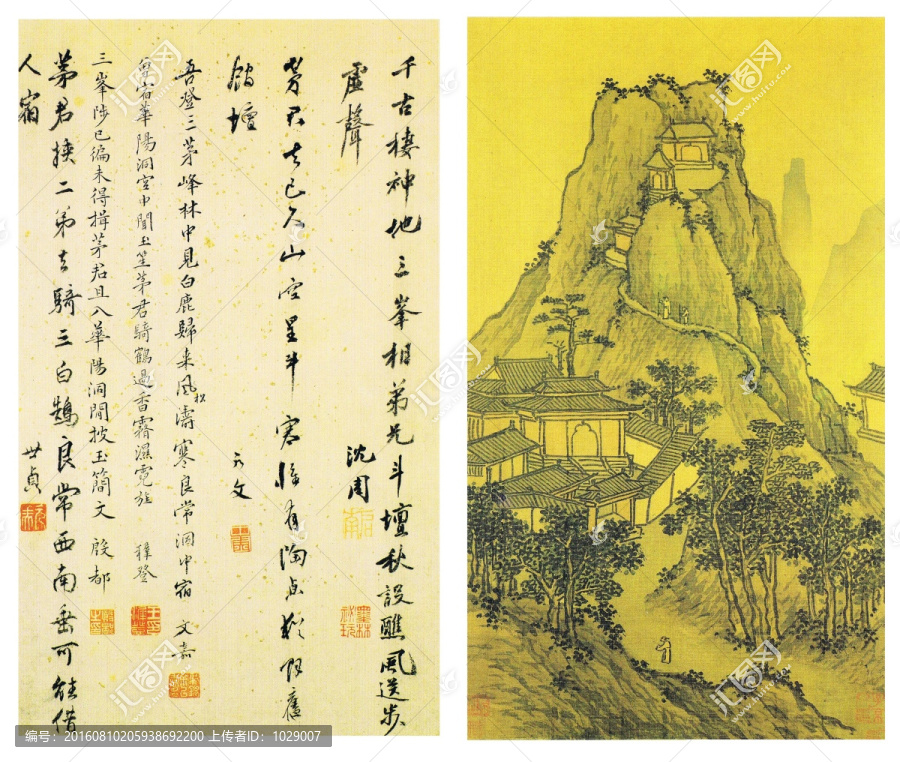 千古棲神地三峯相弟兄斗壇秋設醮風送步
虛聲 沈周
茅君去已久山空星斗寒惟有陶貞
館壇
吾登三茅峰林中見白鹿歸來風松濤寒良常洞中宿 文嘉
宿華陽洞宮中聞玉笙茅君騎鶴過香霧濕霓旌 穉登
三峯陟已徧未得揖茅君且入華陽洞閒披玉簡文 殷都
茅君挾二弟各騎三白鵠良常西南垂可能借
人宿 世貞
汇图网
www.huitu.com
编号：20160810205938692200 上传者ID：1029007